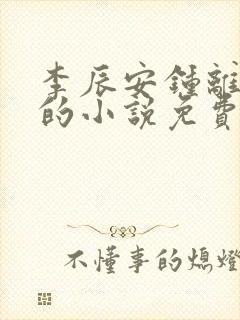 李辰安鍾離
的小說免費
不懂事的熄燈